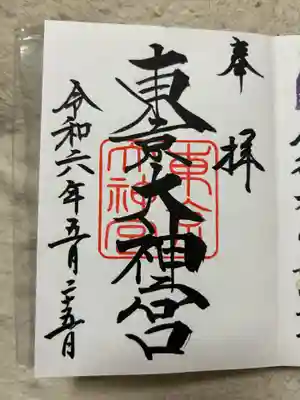 奉拝
東京大神宮
東京大神宮
令和六年五月二十五日